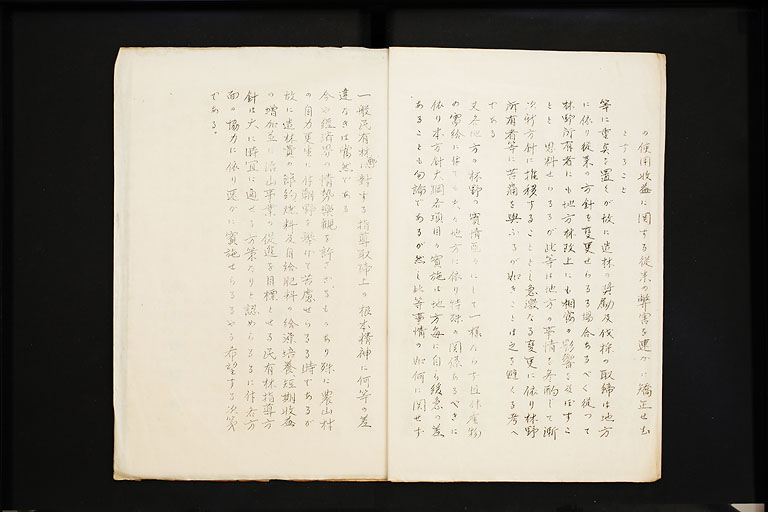 の使用収益に関する従来の弊害を速かに矯正せむ
とすること
等に重点を置くが故に造林の奨励及伐採の取締は地方
に依り従来の方針を変更せらるる場合あるべく従つて
林野所有者にも地方林政上にも相当の影響を及ぼすこ
とと思料せらるるが此等は地方の事情を参酌して漸
次新方針に推移することとし急激なる変更に依り林野
所有者等に苦痛を与ふるが如きことは之を避くる考へ
である
又各地方の林野の実情区々にして一様ならず且林産物
の需給に付ても夫々地方に依り特殊の関係あるべきに
依り本方針大綱各項目の実施は地方毎に自ら緩急の差
あることも勿論であるが然し此等事情の如何に関せず
一般民有林に対する指導取締上の根本精神に何等の差
違なきは当然である
今や経済界の情勢楽観を許さざるものあり殊に農山村
の自力更生に付朝野を挙げて苦慮せらるる時であるが
故に造林費の節約燃料及自給肥料の給源培養、短期収益
の増加並に治山事業の促進を目標とせる民有林指導方
針は大に時宜に適せる方策たりと認めらるるに付各方
面の協力に依り速かに実施せらるるやう希望する次第
である。